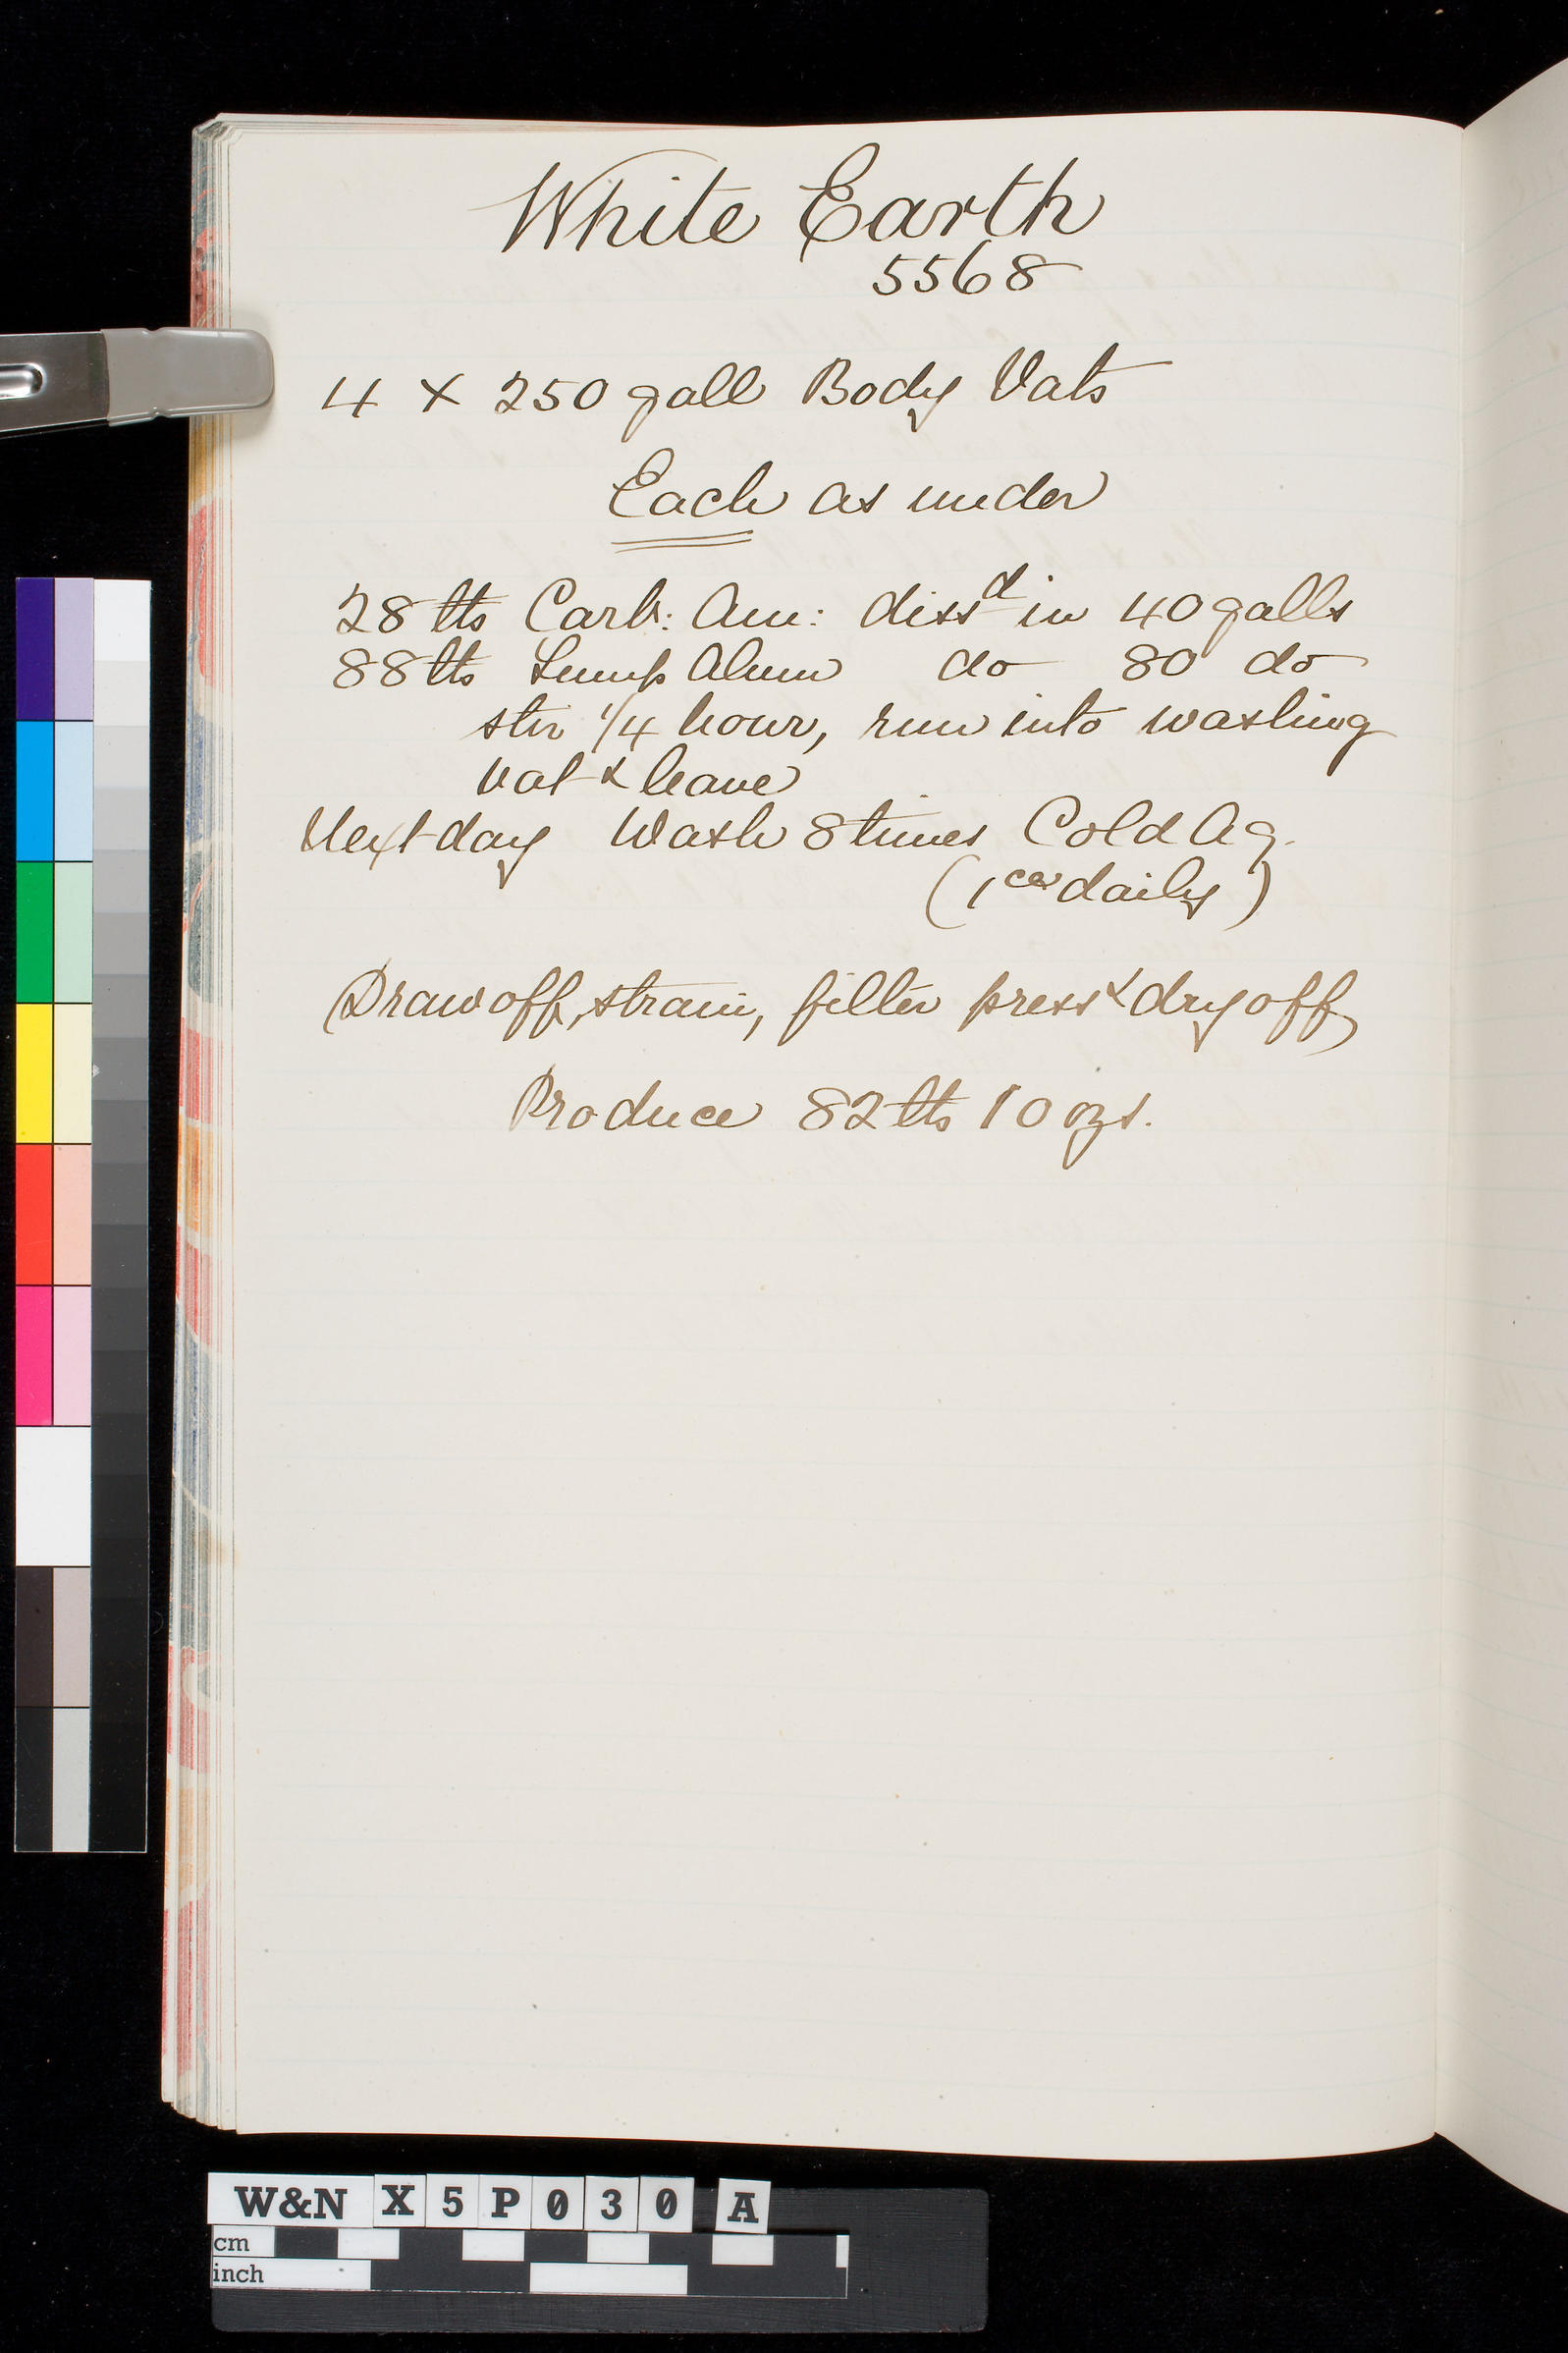 White Earth
5568
4 x 250 gall Body Vats
Each as under
28 lbs Carb: Am: dissd in 40 galls
88 lbs Lump Alum do 80 do
stir 1/4 hour, run into washing
vat & leave
Next day Wash 8 times Cold Aq.
(1ce daily)
Draw off, strain, filter press & dry off
Produce 82 lbs 10 ozs.
W&N X5P030 A
cm
inch